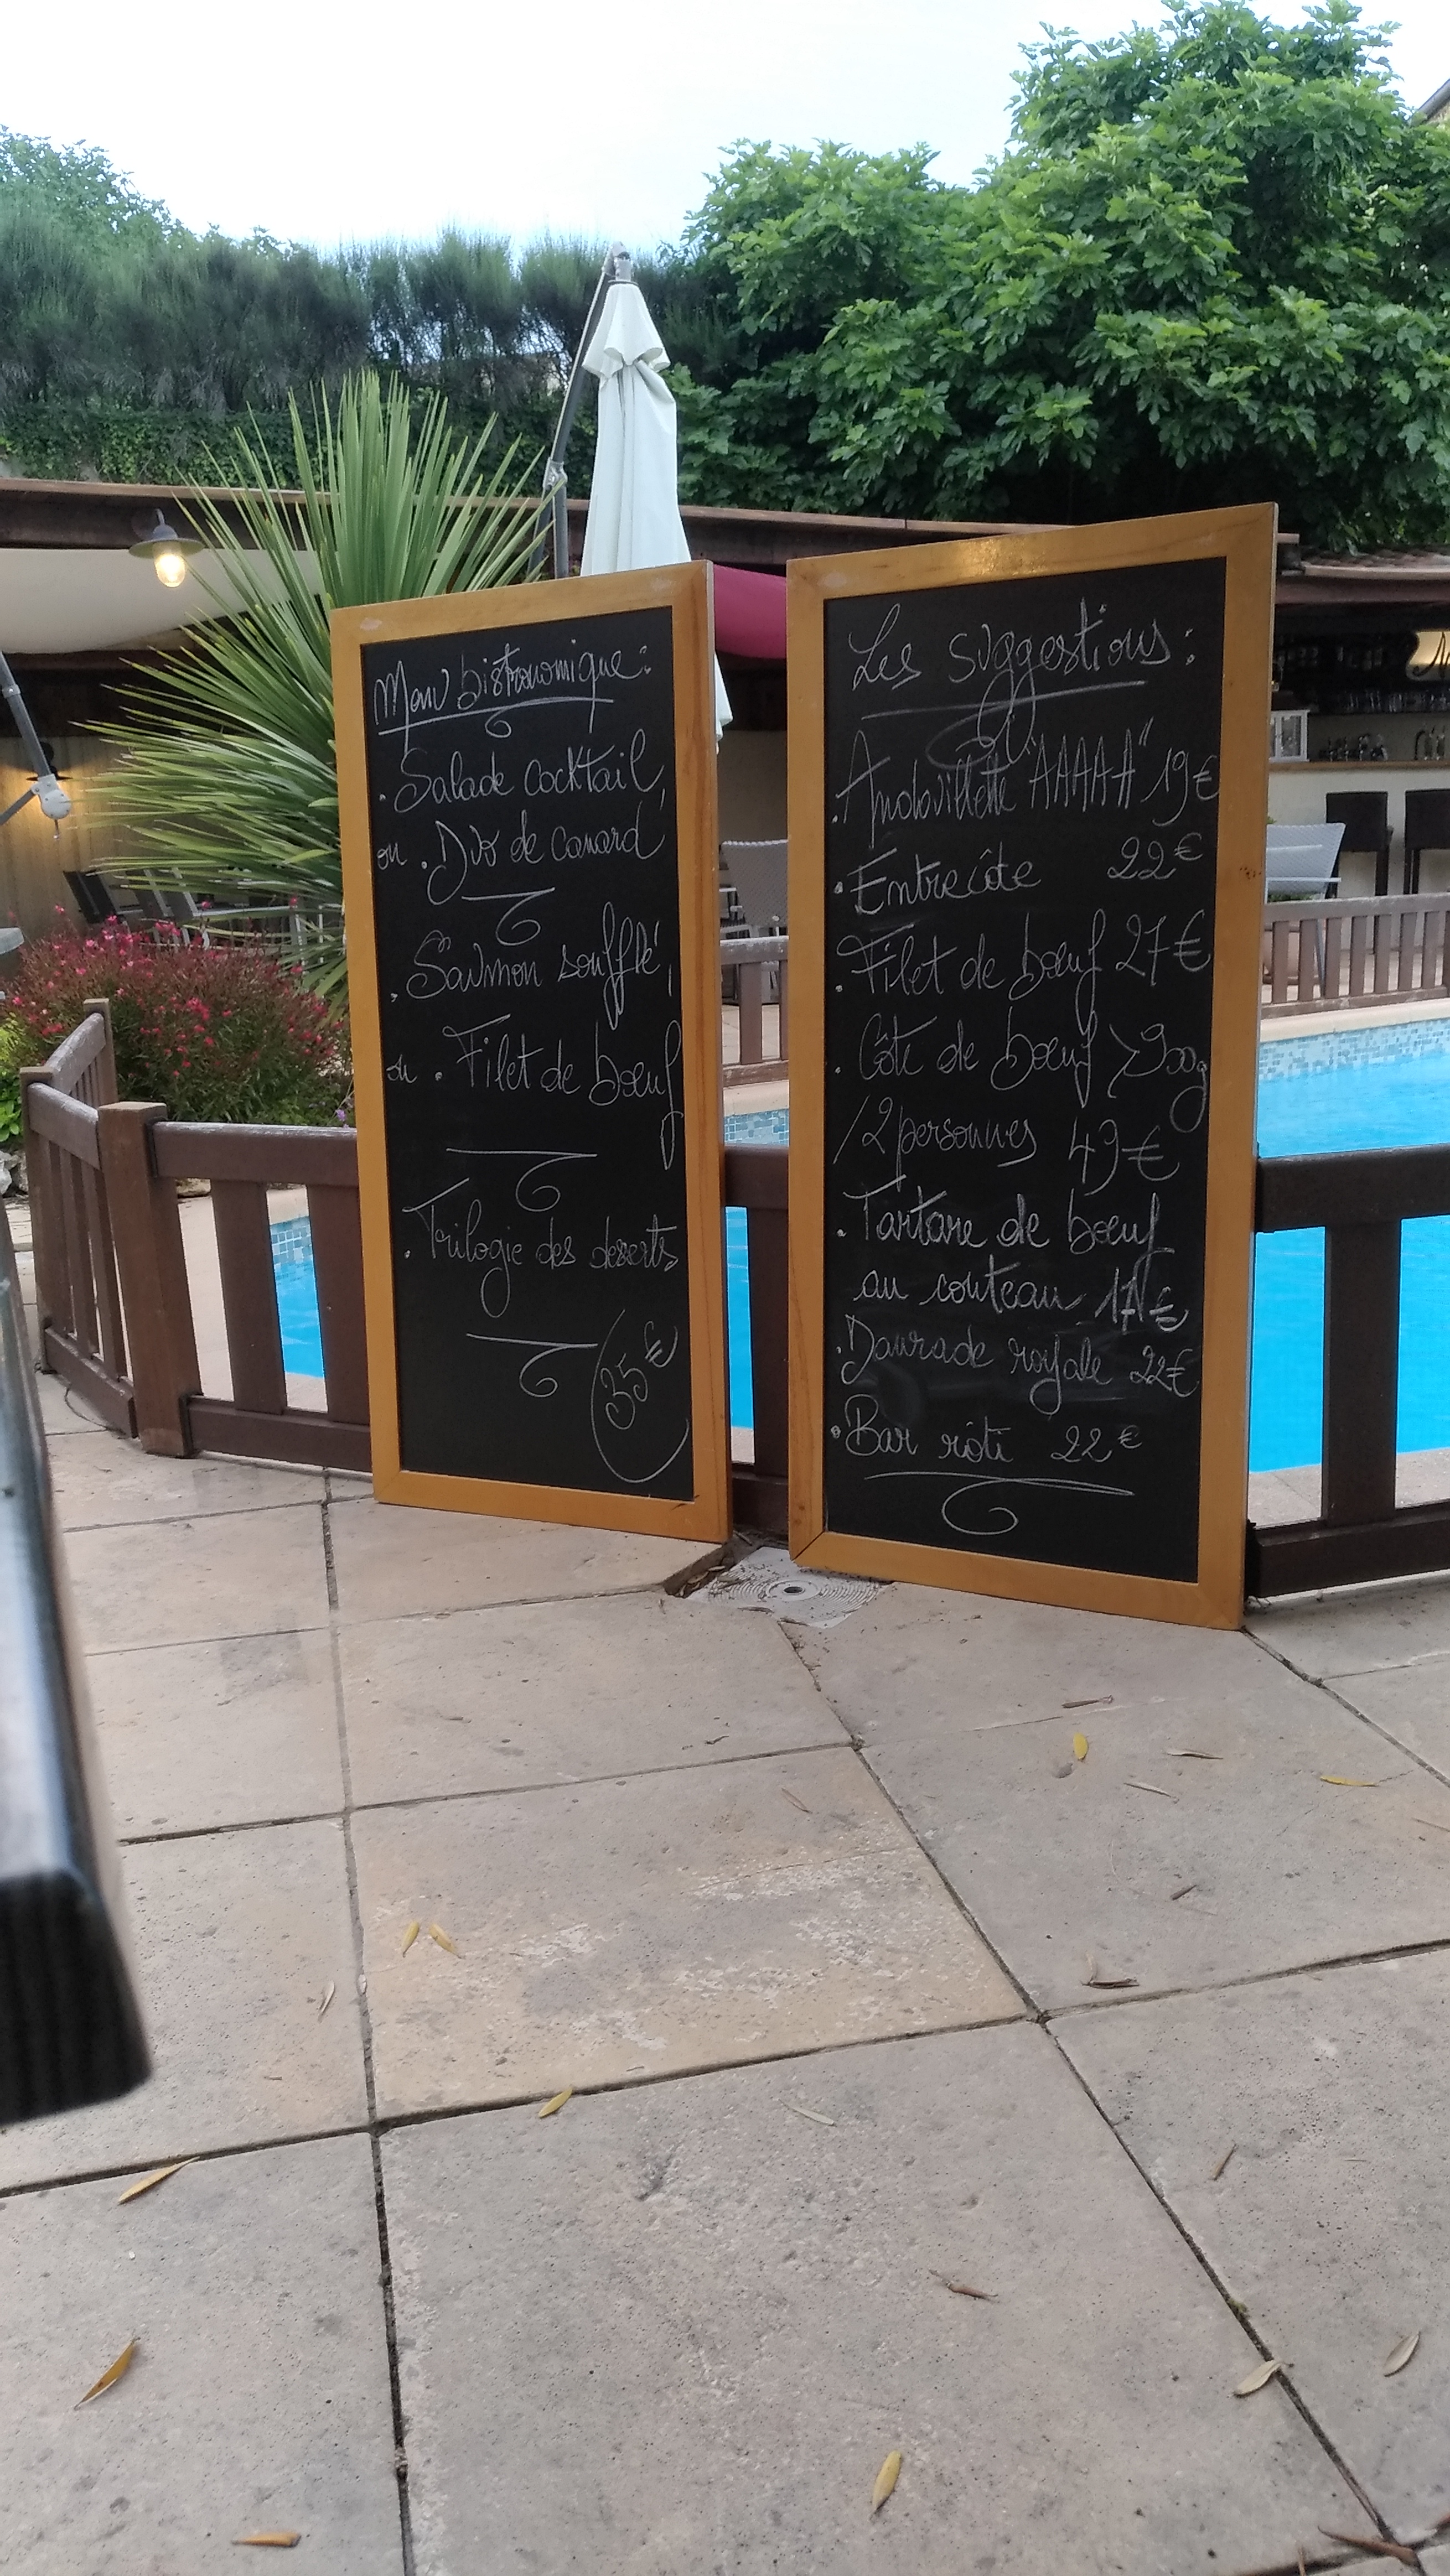 Menu bistronomique :
. Salade cocktail,
ou . Duo de canard
. Saumon soufflé,
ou . Filet de boeuf
. Trilogie des desserts
35€
Les suggestions :
. Andouillette "AAAAA" 19€
. Entrecôte 22€
. Filet de boeuf 27€
. Côte de boeuf > 900g
/2 personnes 49€
. Tartare de boeuf
au couteau 17€
. Daurade royale 22€
. Bar rôti 22€